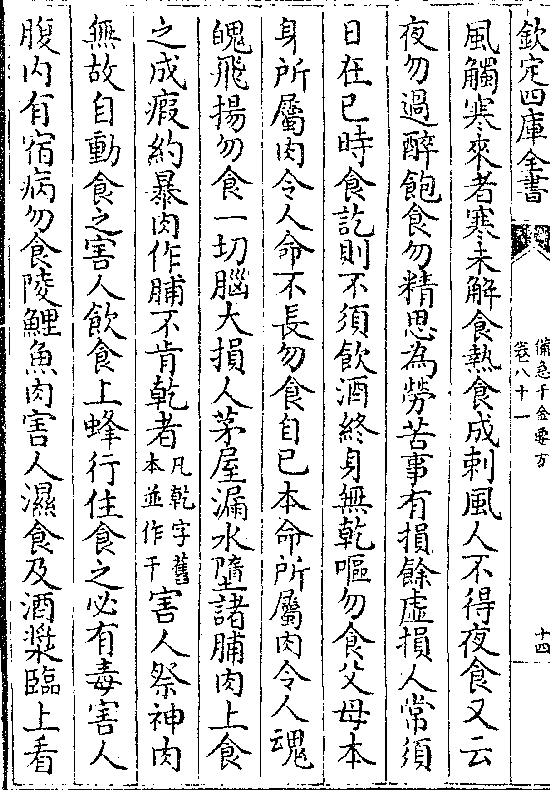 欽定四庫全書
備急千金要方
卷八十一
十四
風觸寒來者寒未解食熱食成刺風人不得夜食又云
夜勿過醉飽食勿精思為勞苦事有損餘虛損人常須
日在巳時食訖則不須飲酒終身無乾嘔勿食父母本
身所屬肉令人命不長勿食自已本命所屬肉令人魂
魄飛揚勿食一切腦大損人茅屋漏水墮諸脯肉上食
之成瘕約暴肉作脯不肯乾者凡乾字舊本並作干害人祭神肉
無故自動食之害人飲食上蜂行住食之必有毒害人
腹內有宿病勿食陵鯉魚肉害人濕食及酒漿臨上看